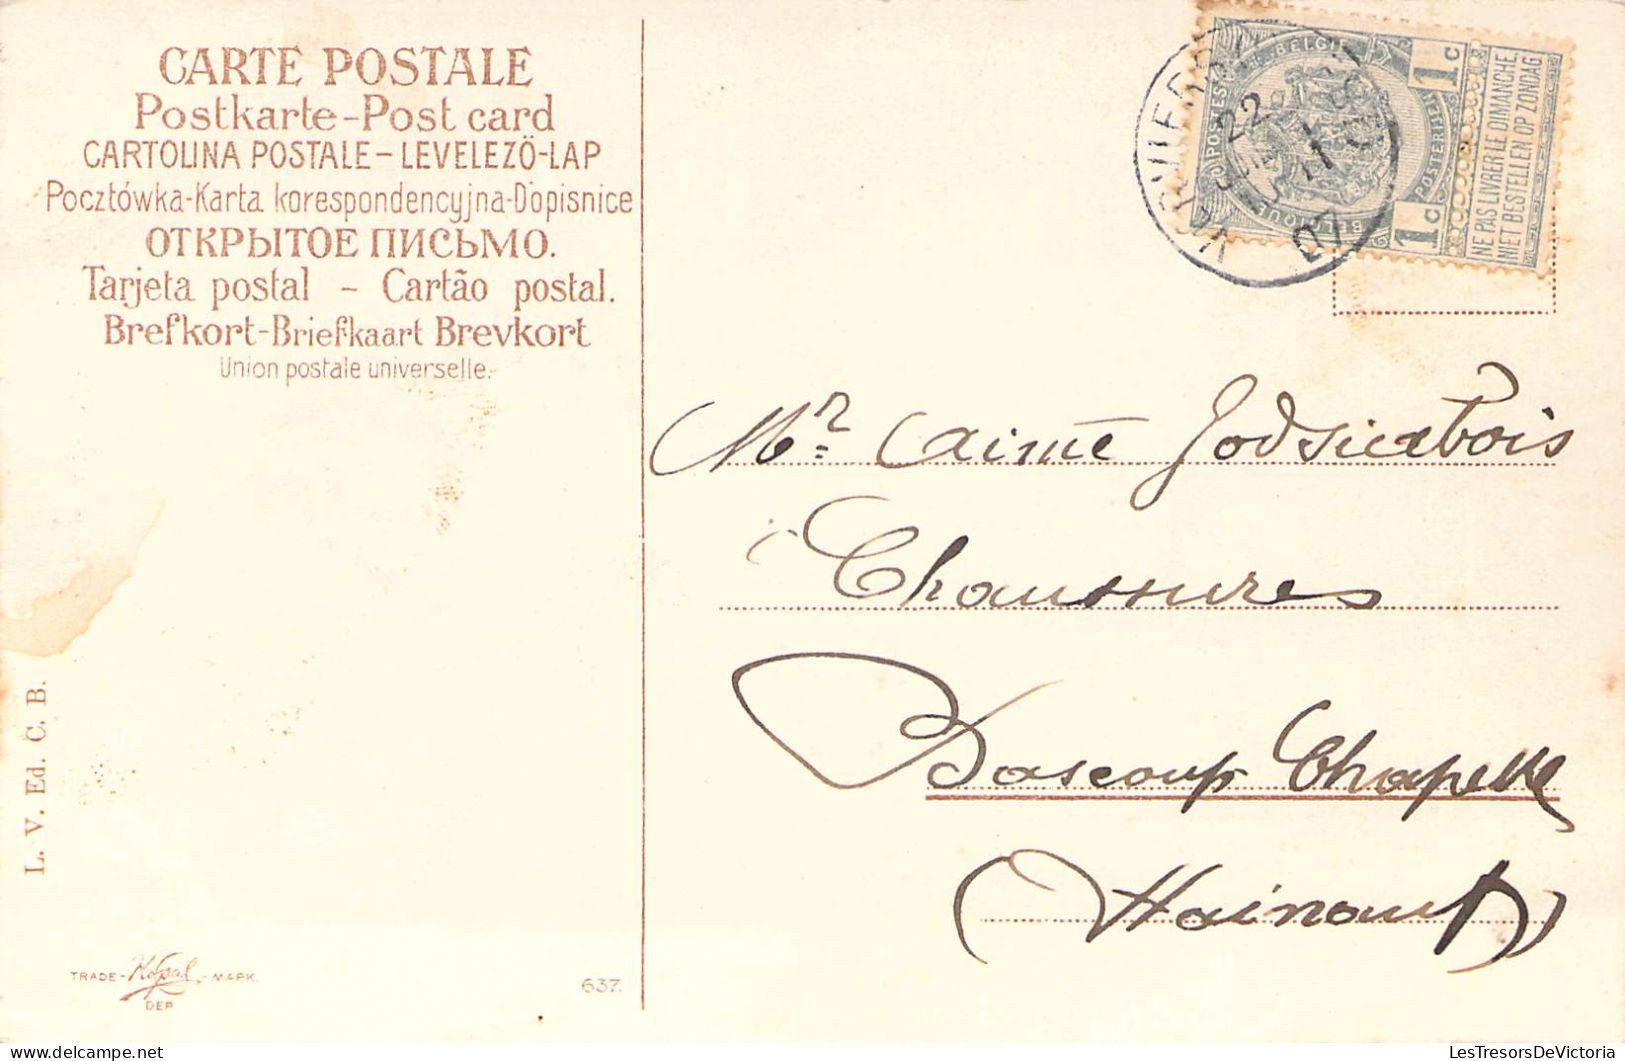 CARTE POSTALE
Postkarte-Post card
CARTOLINA POSTALE-LEVELEZÖ-LAP
Pocztówka-Karta korespondencyjna-Dopisnice
ОТКРЫТОЕ ПИСЬМО.
Tarjeta postal - Cartão postal.
Brefkort-Briefkaart Brevkort
Union postale universelle.
BELGIE
POSTERIJEN
BELGIQUE
POSTES
1c
1c
NE PAS LIVRER LE DIMANCHE
NIET BESTELLEN OP ZONDAG
22
07
Mr. Aimé
Chaussures
Bascoup Chapelle
(Hainaut)
L. V. Ed. C. B.
TRADE-Kopal-MARK.
DEP
637.
LesTresorsDeVictoria